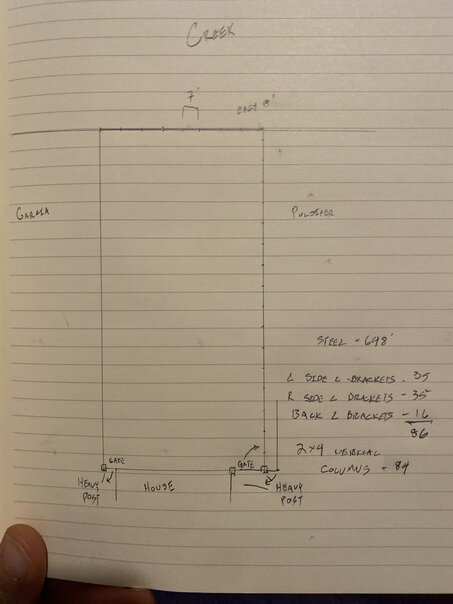 CREEK
7'
EACH 8'
GARCIA
PULSIFER
STEEL - 648'
L SIDE L BRACKETS - 35
R SIDE L BRACKETS - 35
BACK L BRACKETS - 16
86
2x4 VERTICAL
COLUMNS - 84
GATE
GATE
HEAVY
POST
HOUSE
HEAVY
POST